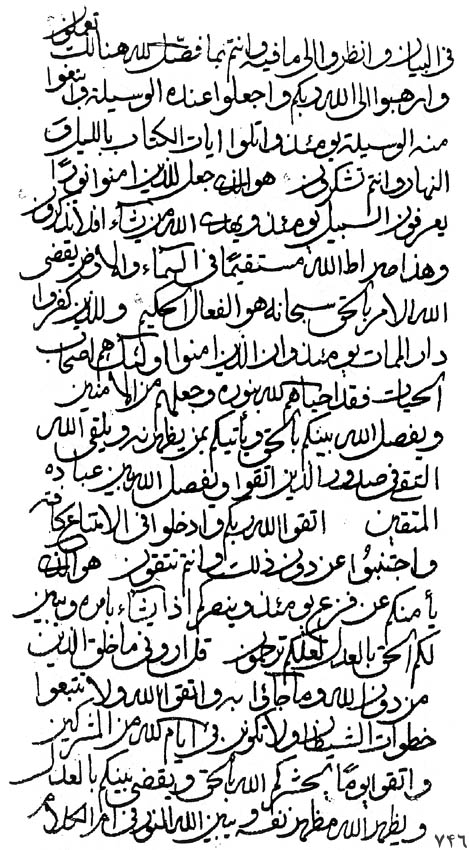 تعملون
فی البیان و انظروا الی ما فیه و انتم بما فصّل الله هنالک
و ارهبوا الی الله ربکم و اجعلوا عنده الوسیلة و ابتغوا
منه الوسیلة یومئذ و اتلوا ایات الکتاب باللیل و
النهار و انتم تشکرون هو الذی جعل للذین امنوا نورًا
یعرفون السبیل یومئذ و یهدی الله من یشاء افلا تذکرون
و هذا صراط الله مستقیمًا فی السماء و الارض یقضی
الله الامر بالحق سبحانه هو الفعال الحکیم و للذین کفروا
دار الممات یومئذ و ان الذین امنوا اولئک هم اصحاب
الحیات فقد احیاهم الله بنوره و جعلهم من الامنین
و یفصل الله بینکم بالحق و یأتیکم بمن یظهرنه و یلقی الله
التقی فی صدور الذین اتقوا و یفصل الله بین عباده
المتقین اتقوا الله ربکم و ادخلوا فی الامتناع کافة
و اجتنبوا عن دون ذلک و انتم تتقون هو الذی
یأمنکم عن فزع یومئذ و ینصرکم اذا یشاء بامره و یبین
لکم الحق بالعدل لعلکم ترحمون قل ارونی ما خلق الذین
من دون الله و ما جائوا به و اتقوا الله و لا تتبعوا
خطوات الشیطان و لا تکونن فی ایام الله من المشرکین
و اتقوا یومًا یحشرکم الله بالحق و یقضی بینکم بالعدل
و یظهر الله مظهر نفسه و یبین الله النور فی امر الکلام
۷۴۶